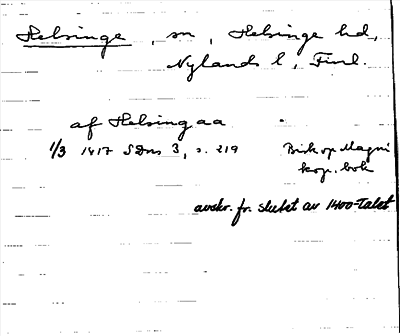 Helsinge, sn, Helsinge hd,
Nylands l, Finl.
af Helsingaa
1/3 1417 SDns 3, s. 219 Biskop Magni
kop. bok
avskr. fr. slutet av 1400-talet